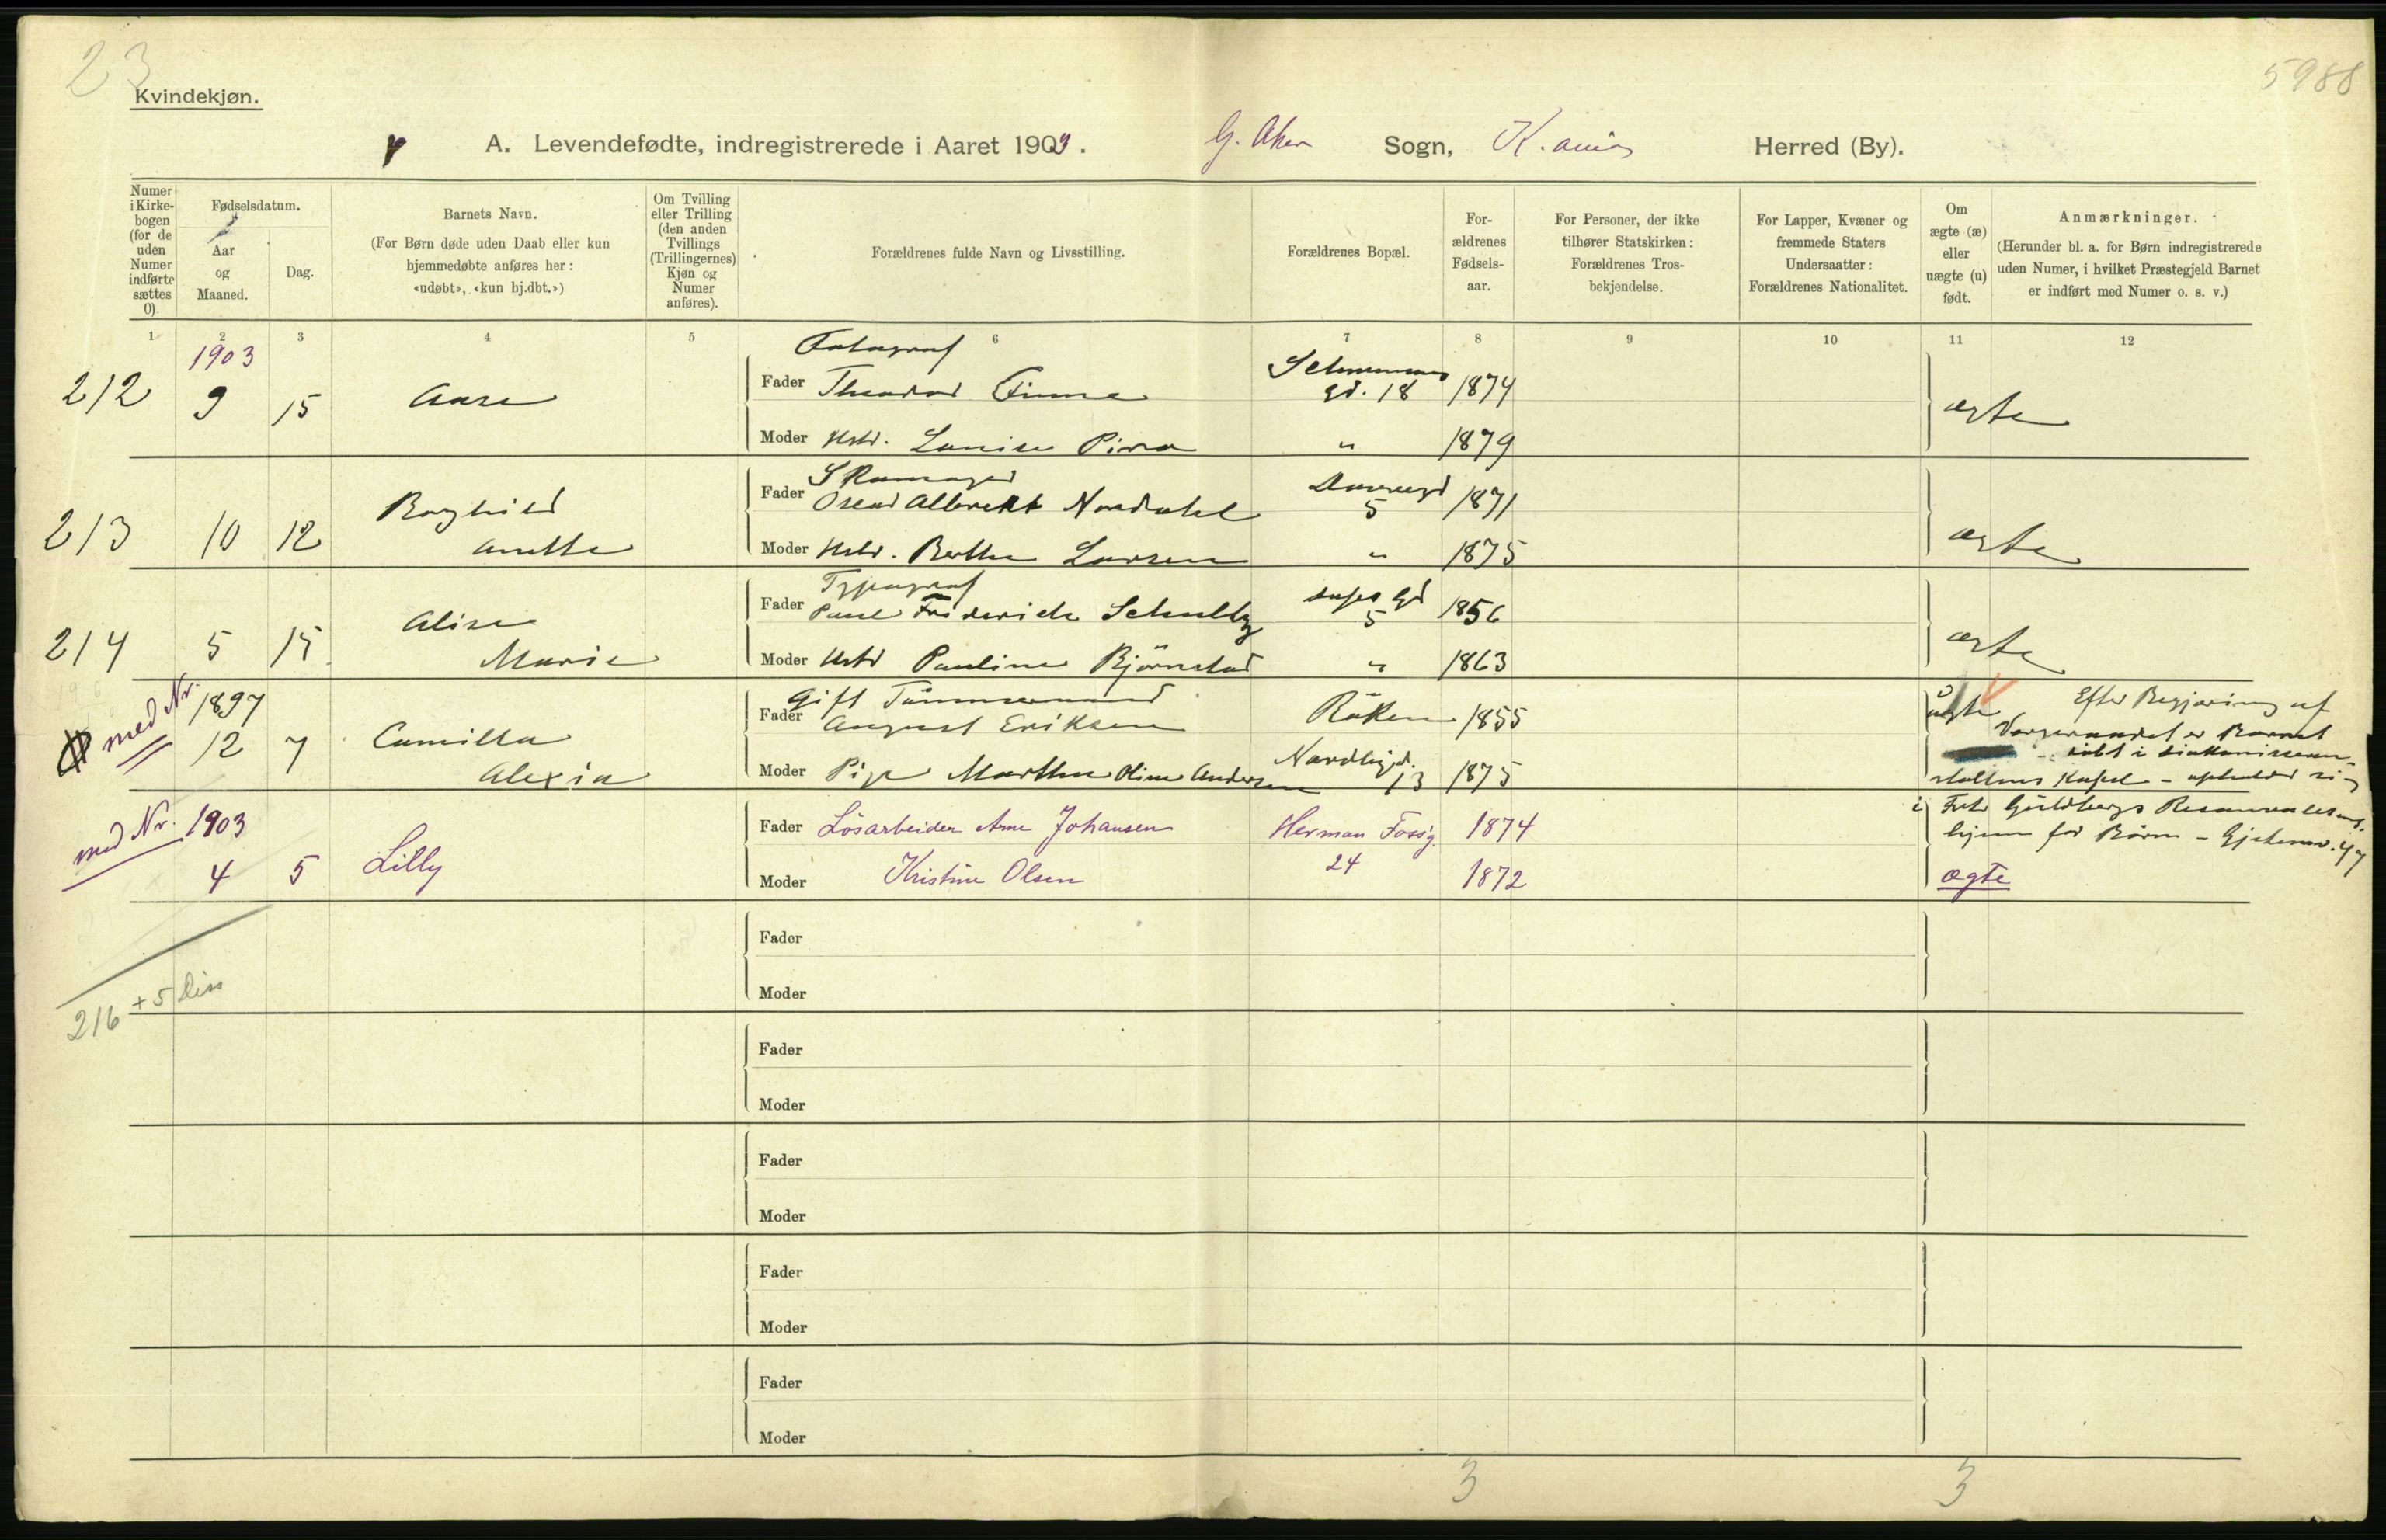 23
5988
Kvindekjøn.
A. Levendefødte, indregistrerede i Aaret 1903. G. Aker Sogn, K.ania Herred (By).
Numer i Kirkebogen (for de uden Numer indførte sættes 0).
Fødselsdatum.
Aar og Maaned.
Dag.
Barnets Navn.
(For Børn døde uden Daab eller kun hjemmedøbte anføres her: «udøbt», «kun hj.dbt.»)
Om Tvilling eller Trilling (den anden Tvillings (Trillingernes) Kjøn og Numer anføres).
Forældrenes fulde Navn og Livsstilling.
Forældrenes Bopæl.
Forældrenes Fødselsaar.
For Personer, der ikke tilhører Statskirken: Forældrenes Trosbekjendelse.
For Lapper, Kvæner og fremmede Staters Undersaatter: Forældrenes Nationalitet.
Om ægte (æ) eller uægte (u) født.
Anmærkninger.
(Herunder bl. a. for Børn indregistrerede uden Numer, i hvilket Præstegjeld Barnet er indført med Numer o. s. v.)
1 2 3 4 5 6 7 8 9 10 11 12
1903
212 9 15 Aase
Fotograf
Fader Theodor Finne gd. 18 1874
Moder Hstr. Louise " 1879
ægte
213 10 12 Borghild Anette
Skomager
Fader Oscar Albrekt Nordahl 5 1871
Moder Hstr. Berthe Larsen " 1875
ægte
214 5 15 Alise Marie
Typograf
Fader Paul Friderick 5 1856
Moder Hstr Pauline Bjørnstad " 1863
ægte
med Nr.
1897
12 7 Camilla Alexia
Gift Tømmermand
Fader August Eriksen Røken 1855
Moder Pige Marthe Oline Andersen 13 1875
uægte Efter Begjæring af
er Barnet
døbt i
stiftelsens Kapel - opholder si-
i Frk Guldbergs
hjem for Børn - 47
med Nr. 1903
4 5 Lilly
Fader Løsarbeider Arne Johansen Herman Fossg. 1874
Moder Kristine Olsen 24 1872
ægte
216 + 5 Diss
Fader
Moder
Fader
Moder
Fader
Moder
Fader
Moder
Fader
Moder
3 3